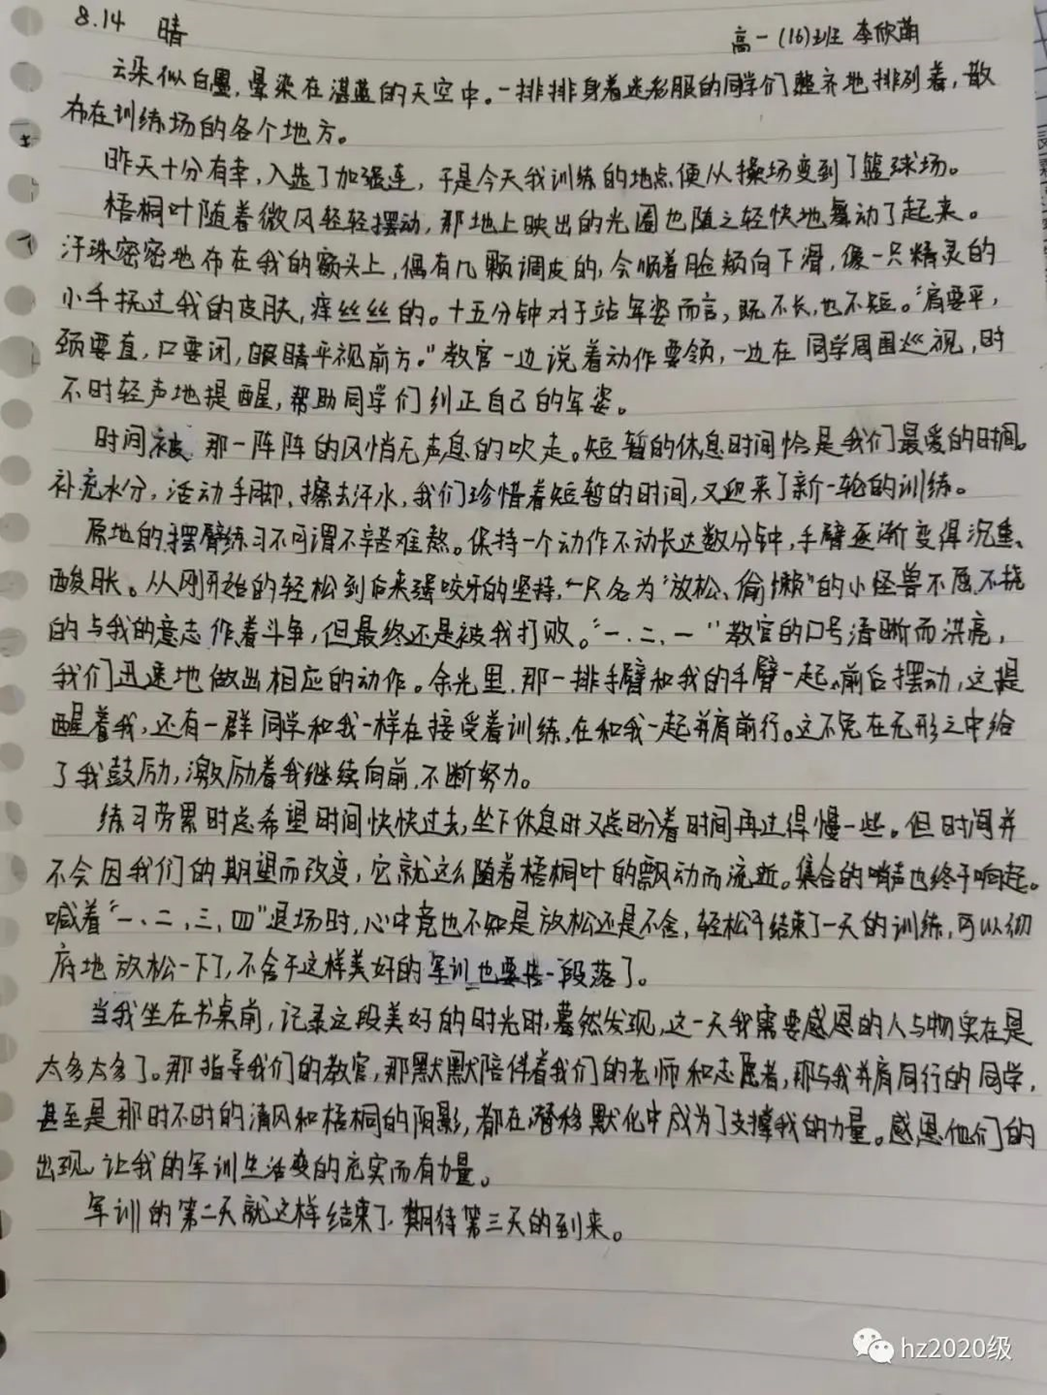 8.14 晴 高一(16)班 李欣萌
云朵似白墨,晕染在湛蓝的天空中。一排排身着迷彩服的同学们整齐地排列着,散
布在训练场的各个地方。
昨天十分有幸,入选了加强连,于是今天我训练的地点便从操场变到了篮球场。
梧桐叶随着微风轻轻摆动,那地上映出的光圈也随之轻快地舞动了起来。
汗珠密密地布在我的额头上,偶有几颗调皮的,会顺着脸颊向下滑,像一只精灵的
小手抚过我的皮肤,痒丝丝的。十五分钟对于站军姿而言,既不长,也不短。“肩要平,
颈要直,口要闭,眼睛平视前方。”教官一边说着动作要领,一边在同学周围巡视,时
不时轻声地提醒,帮助同学们纠正自己的军姿。
时间被那一阵阵的风悄无声息的吹走。短暂的休息时间恰是我们最爱的时间。
补充水分,活动手脚、擦去汗水,我们珍惜着短暂的时间,又迎来了新一轮的训练。
原地的摆臂练习不可谓不辛苦难熬。保持一个动作不动长达数分钟,手臂逐渐变得沉重、
酸胀。从刚开始的轻松到后来强咬牙的坚持,一只名为“放松、偷懒”的小怪兽不屈不挠
的与我的意志作着斗争,但最终还是被我打败。“一、二、一”教官的口号清晰而洪亮,
我们迅速地做出相应的动作。余光里,那一排手臂和我的手臂一起前后摆动,这提
醒着我,还有一群同学和我一样在接受着训练,在和我一起并肩前行。这不免在无形之中给
了我鼓励,激励着我继续向前,不断努力。
练习劳累时总希望时间快快过去,坐下休息时又总盼着时间再过得慢一些。但时间并
不会因我们的期望而改变,它就这么随着梧桐叶的飘动而流逝。集合的哨声也终于响起。
喊着“一、二、三、四”退场时,心中竟也不知是放松还是不舍,轻松于结束了一天的训练,可以彻
底地放松一下了,不舍于这样美好的军训也要告一段落了。
当我坐在书桌前,记录这段美好的时光时,蓦然发现,这一天我需要感恩的人与物实在是
太多太多了。那指导我们的教官,那默默陪伴着我们的老师和志愿者,那与我并肩同行的同学,
甚至是那时不时的清风和梧桐的阴影,都在潜移默化中成为了支撑我的力量。感恩他们的
出现,让我的军训生活变的充实而有力量。
军训的第二天就这样结束了,期待第三天的到来。
hz2020级